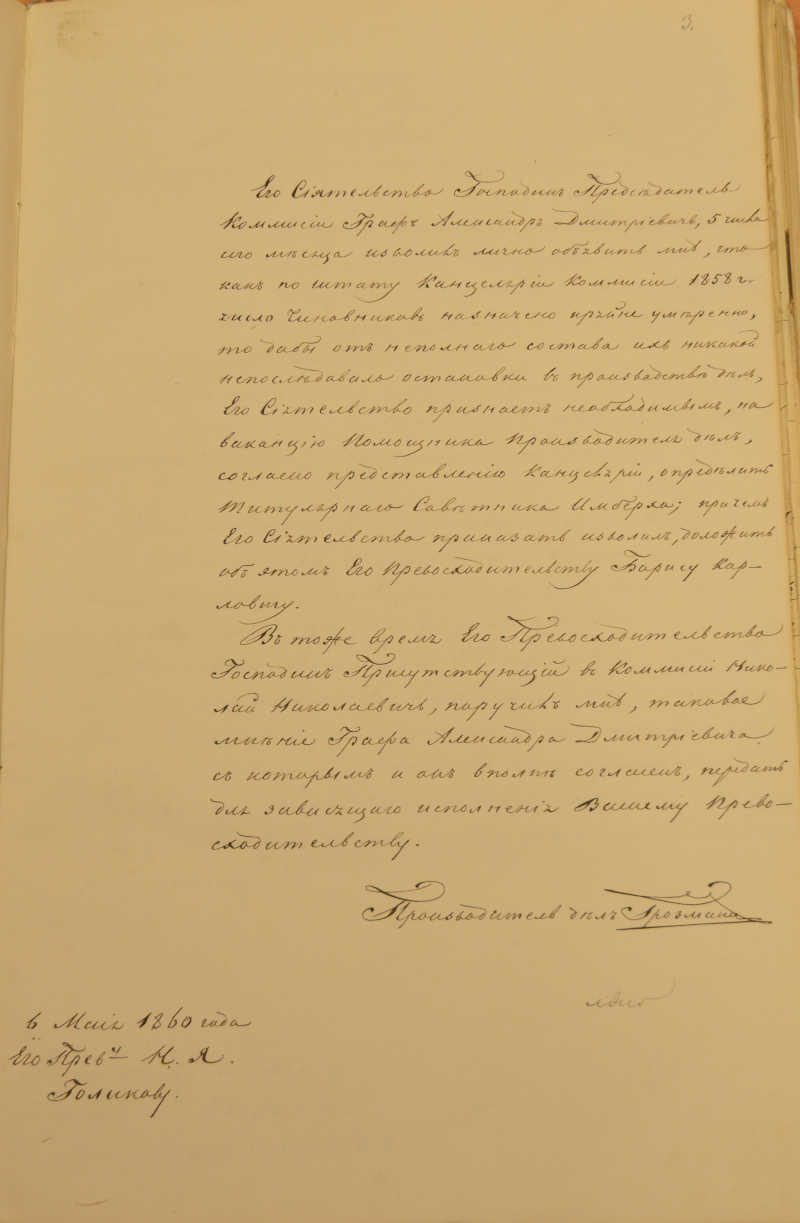 3.
Его Сіятельство Господинъ Предсѣдатель
Коммисіи Графъ Александръ Дмитріевичъ, 5 числа
сего мѣсяца изволилъ лично объявить мнѣ, что
какъ по штату Канцеляріи Коммисіи 1858 г.
число Чиновниковъ назначено крайне умѣренно,
то дабы отъ неполнаго состава ихъ никакой
непослѣдовало остановки въ производствѣ дѣлъ,
Его Сіятельство признаетъ необходимымъ, на
вакансію Помощника Производителя дѣлъ,
согласно представленію Канцеляріи, опредѣлить
Титулярнаго Совѣтника Имберха; при чемъ
Его Сіятельство приказать изволилъ, доложить
объ этомъ Его Превосходительству Борису Кар-
ловичу.
Въ тоже время Его Превосходительство
Господинъ Присутствующій въ Коммисіи Нико-
лай Николаевичъ, поручилъ мнѣ, таковое
мнѣніе Графа Александра Дмитріевича
съ которымъ и онъ вполнѣ согласенъ, передать
для зависящаго исполненія Вашему Прево-
сходительству.
Производитель дѣлъ
6 Мая 1860 года
Его Прев-у Н. Я.
Голикову.